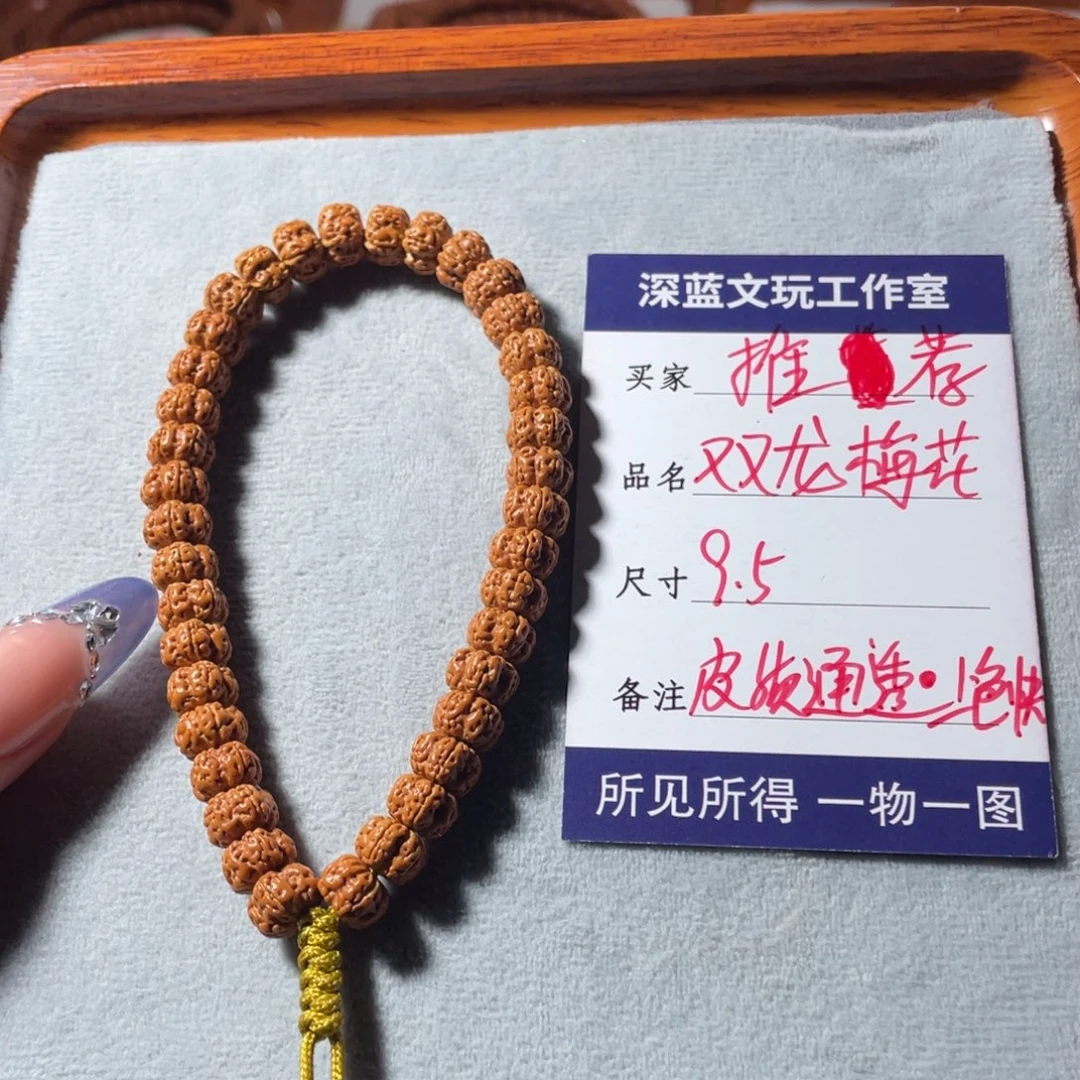 深蓝文玩工作室
买家 推荐
品名 双龙梅花
尺寸 9.5
备注 皮质通透·上色快
所见所得 一物一图